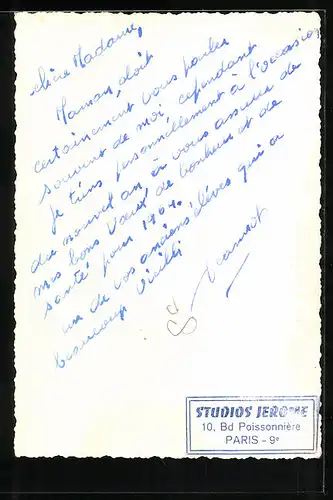 Chère Madame,
Maman doit
certainement vous parler
souvent de moi cependant
je tiens personnellement à l'occasion
du nouvel an à vous assurer de
mes bons vœux de bonheur et de
santé pour
un de vos anciens élèves qui a
beaucoup vieilli
Jeannot
STUDIOS JEROME
10, Bd Poissonnière
PARIS - 9e